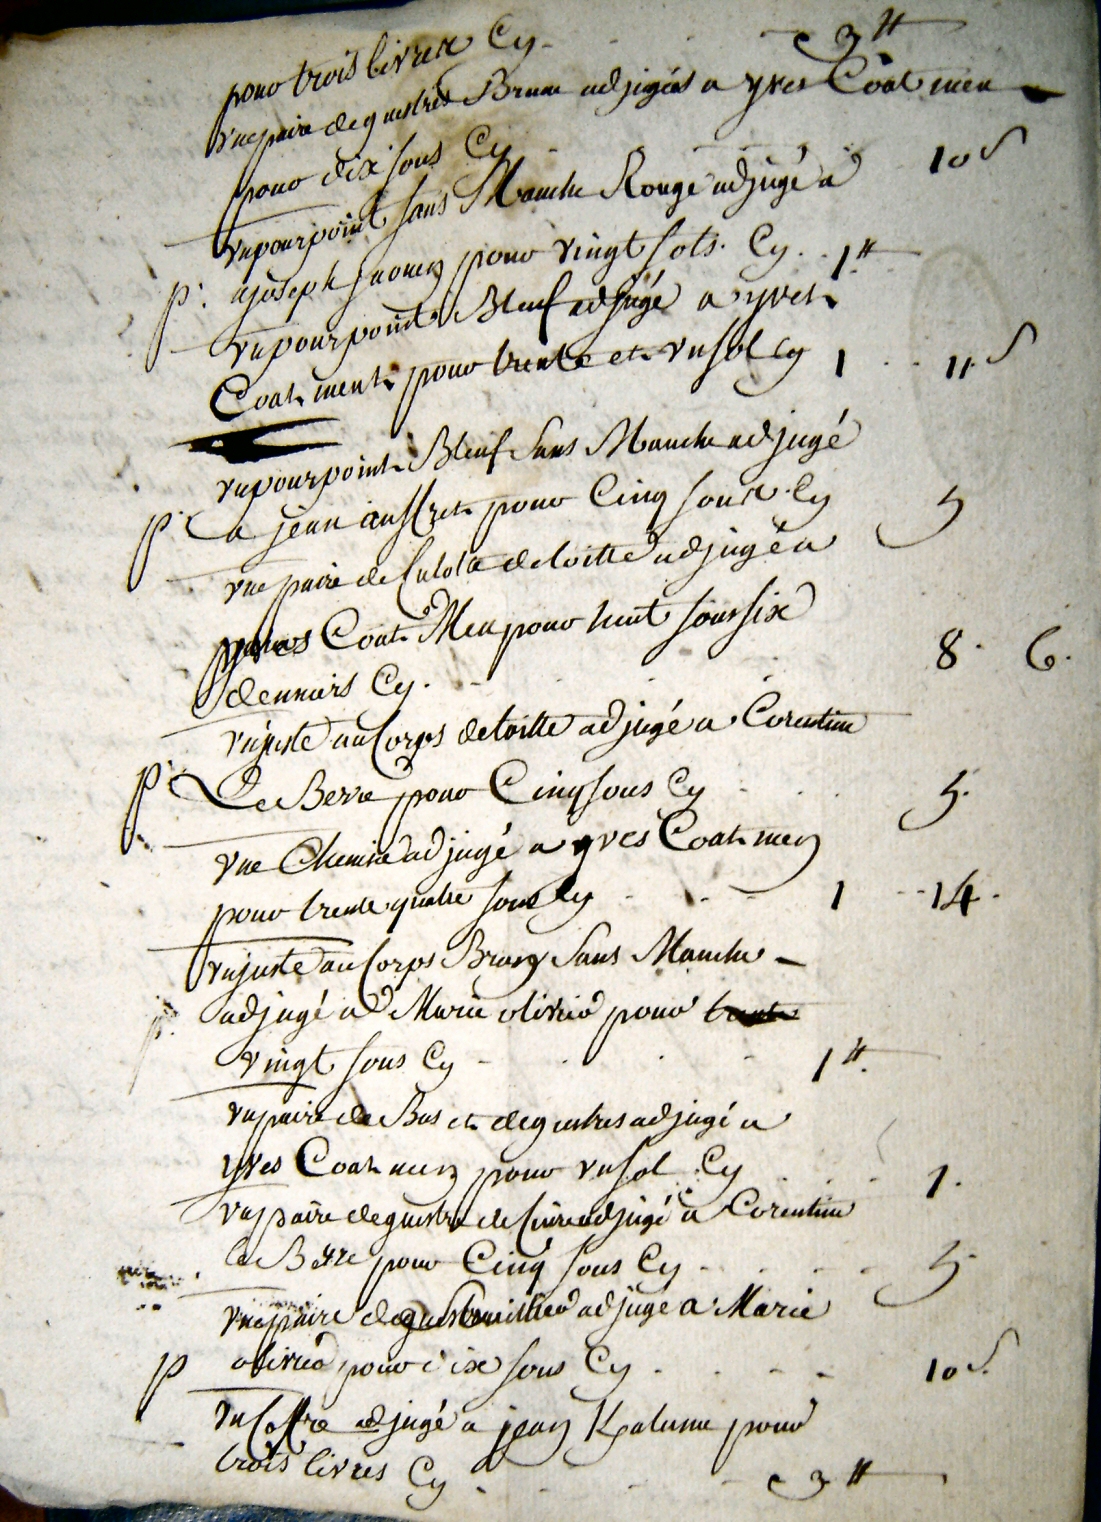 pour trois livres Cy 3 ₶
une paire de guestres Brune adjugés a yves Coat men
pour dix sous Cy 10 s
un pourpoint sans Manche Rouge adjugé a
p. a joseph pour vingt sols. Cy 1 ₶
un pourpoint Bleuf adjugé a yves
Coat ment pour trente et un sol Cy 1 11 s
un pourpoint Bleuf sans Manche adjugé
p. a jean auffret pour Cinq sous Cy 5
une paire de Culotte de toille adjugé a
yves Coat Men pour huit sous six 8. 6.
denniers Cy.
un juste au Corps de toille adjugé a Corentin
p. Le Berre pour Cinq sous Cy 5.
une Chemise adjugé a yves Coat men
pour trente quatre sous Cy 1 14.
un juste au Corps Brun Sans Manche
p. adjugé a Marie olivier pour
vingt sous Cy 1 ₶.
un paire de Bas et de guestres adjugé a
yves Coat men pour un sol Cy 1.
un paire de guestre de Cuire adjugé a Corentin
le Berre pour Cinq sous Cy 5
une paire de adjugé a Marie
p olivier pour dix sous Cy 10 s.
un Coffre adjugé a jean Kjalum pour
trois livres Cy 3 ₶